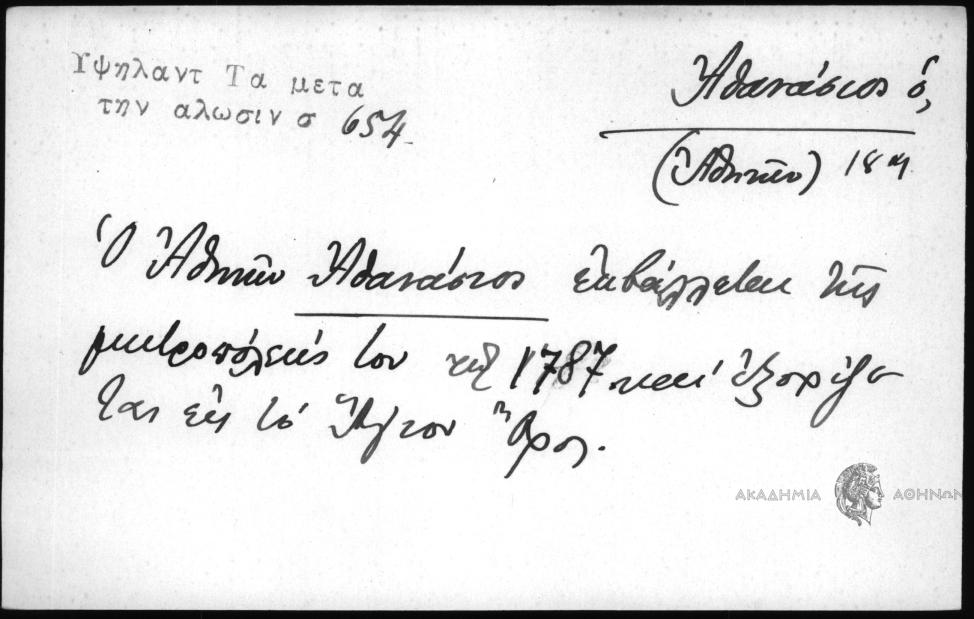 Υψηλαντ Τα μετα
την αλωσιν σ 654
Ἀθανάσιος ὁ,
(Ἀθηνῶν) 18
Ὁ Ἀθηνῶν Ἀθανάσιος ἐκβάλλεται τῆς
μητροπόλεώς του τῷ 1787 καὶ ἐξορίζε
ται εἰς τὸ Ἅγιον Ὄρος.
ΑΚΑΔΗΜΙΑ ΑΘΗΝΩΝ